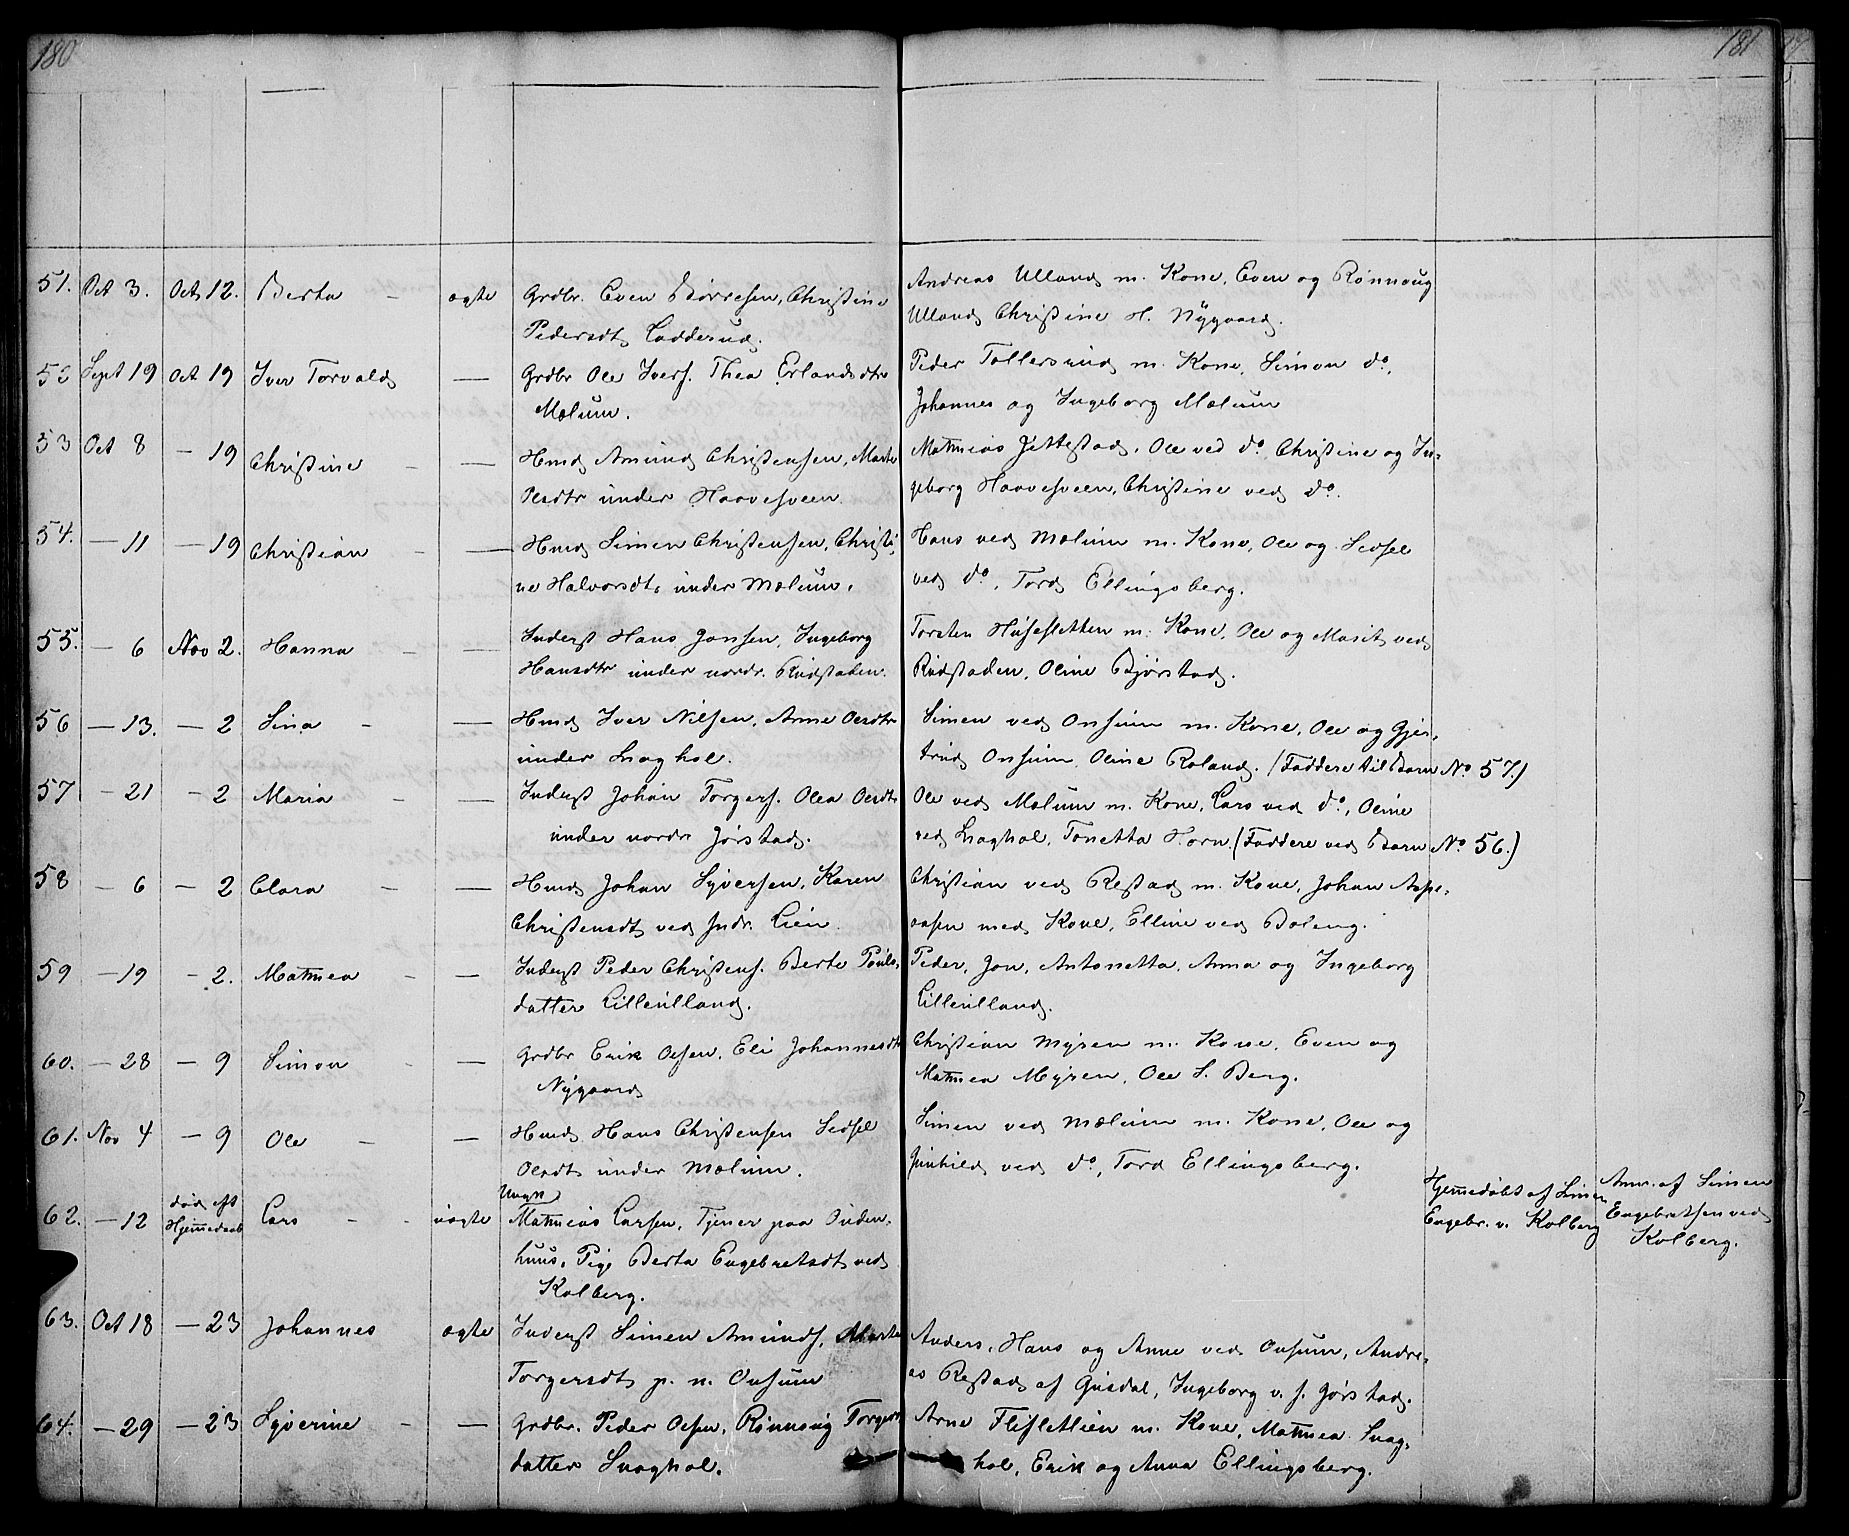 180
181
51. Oct 3. Oct 12. Berta - ægte Grdbr. Even Børresen, Christine
Pedersdtr Ladderud.
Andreas Ulland m. Kone, Even og Rønnoug
Ulland, Christine H. Nygaard.
52 Sept 19 Oct 19 Iver Torvald — Grdbr Ole Ivers. Thea Erlandsdtr
Mælum.
Peder Tollersrud m. Kone, Simon do,
Johannes og Ingeborg Mælum
53 Oct 8 - 19 Christine - — Hmd Amund Christensen, Marte
Olsdtr under Haavesveen.
Mathias Jettestad, Ole ved do, Christine og In-
geborg Haavesveen, Christine ved do.
54. - 11 - 19 Christian - — Hmd Simen Christensen, Christi-
ne Halvorsdtr under Mælum.
Hans ved Mælum m. Kone, Ole og Sedsel
ved do, Tord Ellingsberg.
55. - 6 Nov 2. Hanna - — Inderst Hans Jansen, Ingeborg
Hansdtr under nordr. Rudstaden.
Torsten Husesletten m. Kone, Ole og Marit ved
Rudstaden, Oline Bjørstad.
56 - 13. - 2 Lina - — Hmd Iver Nilsen, Anne Olsdtr
under Snaghol.
Simen ved Onsum m. Kone, Ole og Gjer-
trud Onsum, Oline Roland. (Faddere til Barn No 57.)
57 - 21 - 2 Maria - — Inderst Johan Torgers. Olea Olsdtr
under nordr Jørstad.
Ole ved Mælum m. Kone, Lars ved do, Oline
ved Snaghol, Tonetta Horn. (Faddere ved Barn No 56.)
58 - 6 - 2 Clara - — Hmd Johan Syversen, Karen
Christensdtr ved Jndr. Lien.
Christian ved Restad m. Kone, Johan Aspe-
aasen med Kone, Elline ved Boleng.
59 - 19 - 2. Mathea - — Inderst Peder Christens. Berte Pouls-
datter Lilleulland.
Peder, Jon, Antonetta, Anna og Ingeborg
Lilleulland.
60. - 28 - 9 Simon - — Grdbr Erik Olsen, Eli Johannesdtr
Nygaard
Christian Myren m. Kone, Even og
Mathea Myren, Ole S. Berg.
61. Nov 4 - 9 Ole - — Hmd Hans Christensen Sedsel
Olsdtr under Mælum.
Simen ved Mælum m. Kone, Ole og
Gunhild ved do, Tord Ellingsberg.
62. - 12 død eft Hjemmedaab Lars - - uægte Ungk
Mathias Larsen, Tjener paa Onden-
huus, Pige Berta Engebretsdtr ved
Kolberg.
Hjemmedøbt af Simen
Engebr. v. Kolberg
Anm. af Simen
Engebretsen ved
Kolberg.
63. Oct 18 - 23 Johannes - ægte Inderst Simen Amunds, Marte
Torgersdtr p. n. Onsum
Anders, Hans og Anne ved Onsum, Andre-
as Restad af Gusdal, Ingeborg v. s. Jørstad.
64. - 29 - 23 Syverine - — Grdbr. Peder Olsen, Rønnoug Torgers
datter Snaghol.
Arne Flisletlien m. Kone, Mathea Snag-
hol, Erik og Anna Ellingsberg.